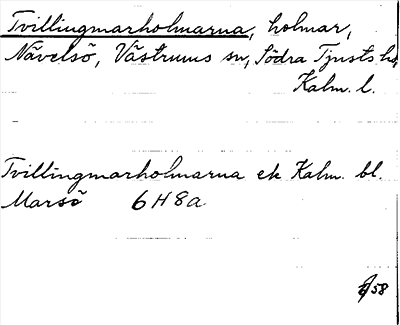 Tvillingmarholmarna, holmar,
Nävelsö, Västrums sn, Södra Tjusts hd,
Kalm. l.
Tvillingmarholmarna ek Kalm. bl.
Marsö 6H8a
58